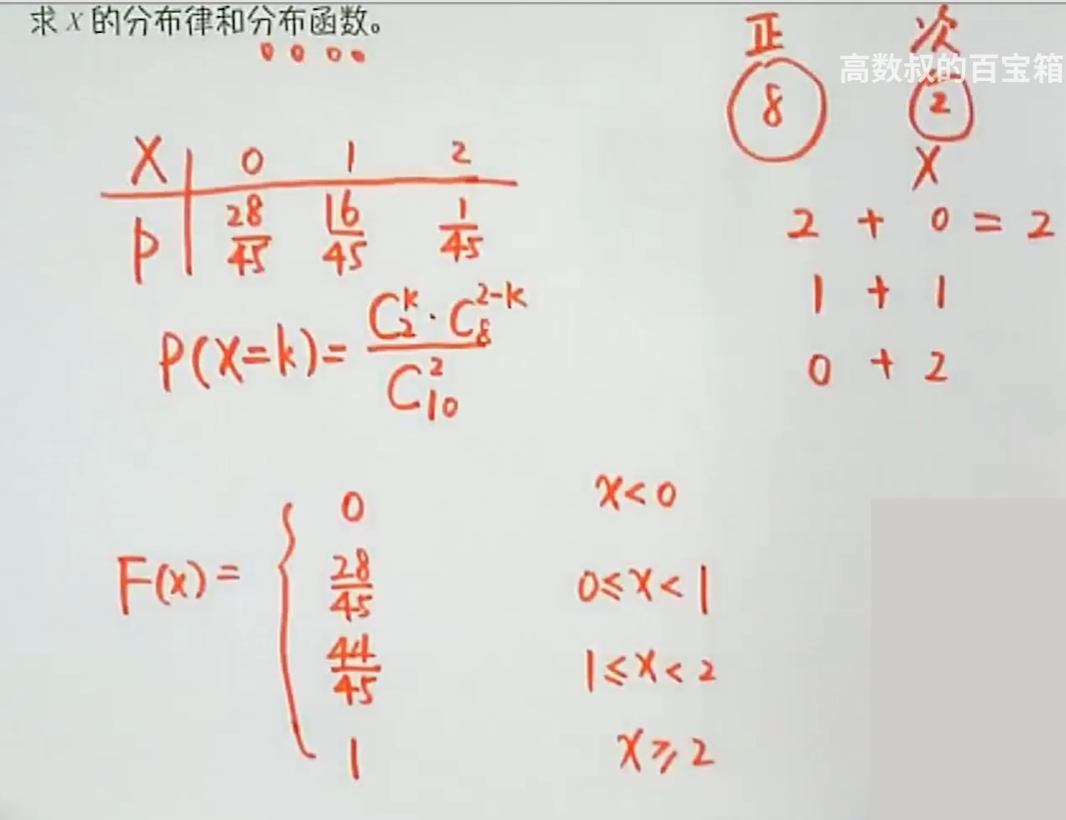 求 X 的分布律和分布函数。
正 次
高数叔的百宝箱
8 2
X
X 0 1 2
P 28/45 16/45 1/45
2 + 0 = 2
1 + 1
0 + 2
P(X=k)= C₂ᵏ·C₈²⁻ᵏ / C₁₀²
F(x)= {
0 x<0
28/45 0≤x<1
44/45 1≤x<2
1 x≥2